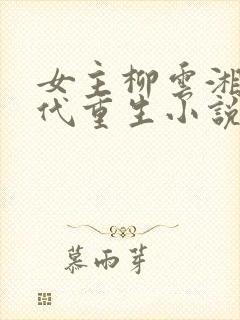 女主柳雲湘
代重生小說
慕雨芽